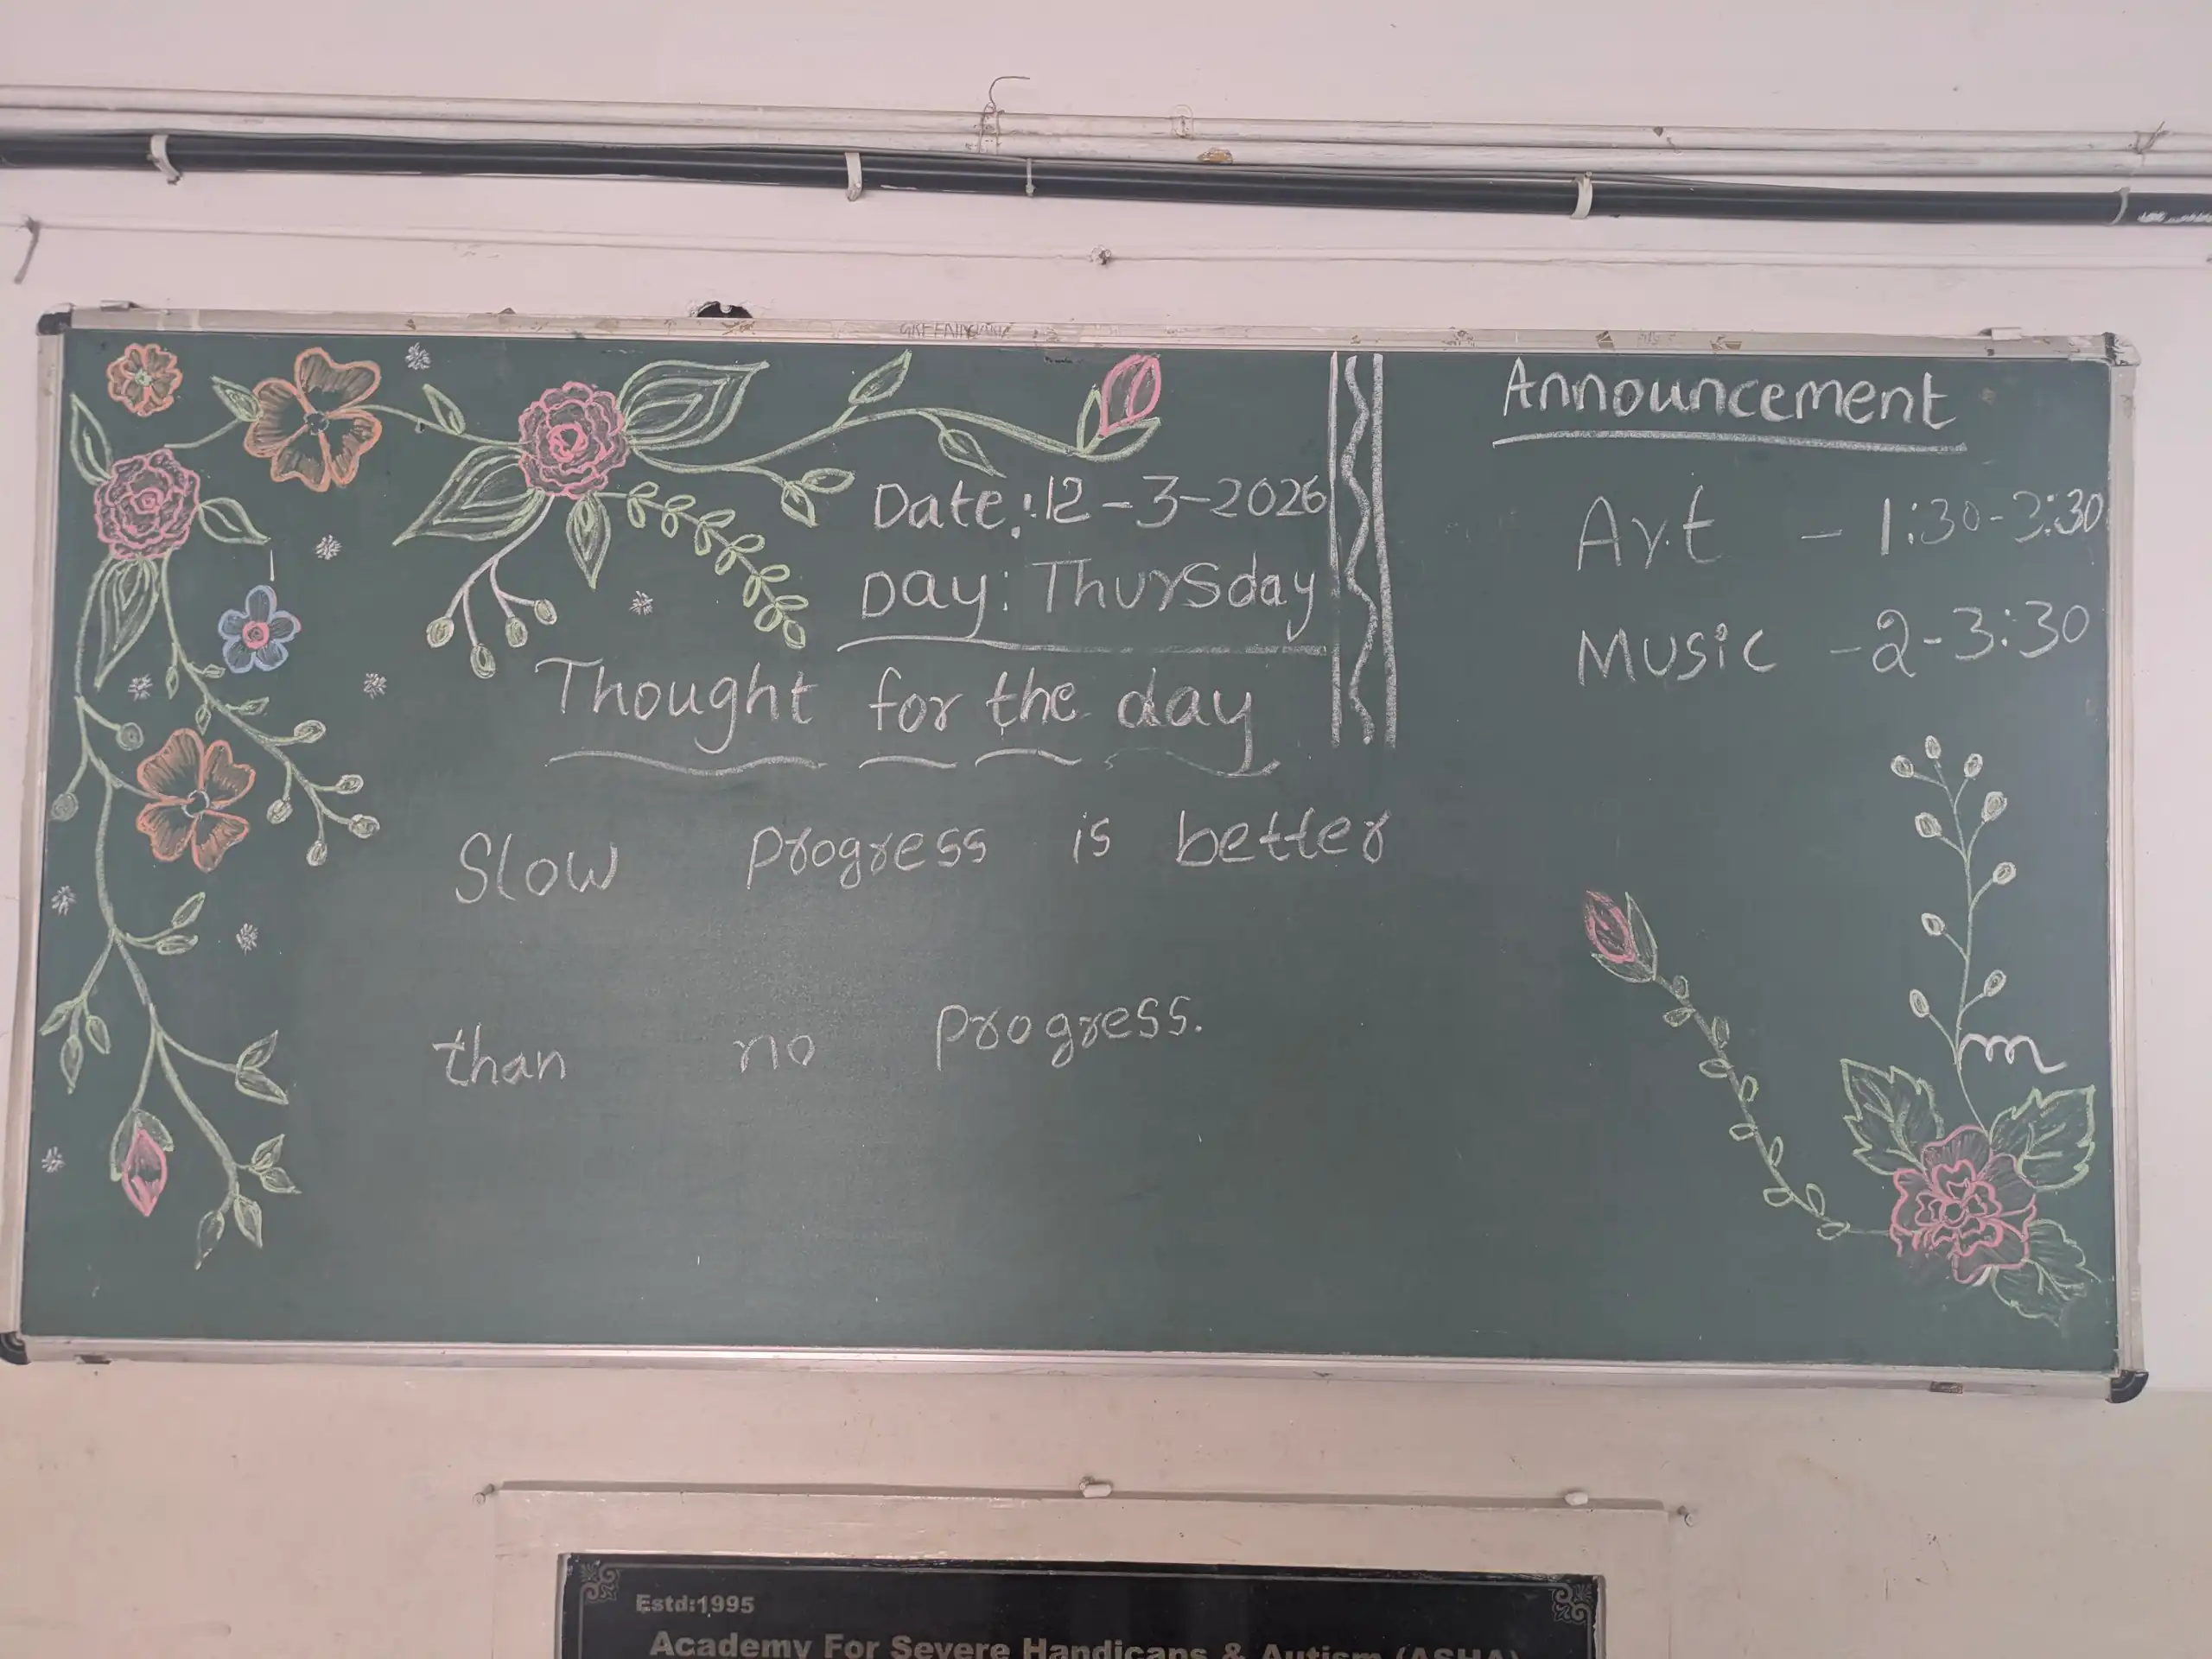 Date: 12-3-2026
Day: Thursday
Thought for the day
Slow progress is better
than no progress.
Announcement
Art - 1:30-3:30
Music - 2-3:30
Estd:1995
Academy For Severe Handicaps & Autism (ASHA)